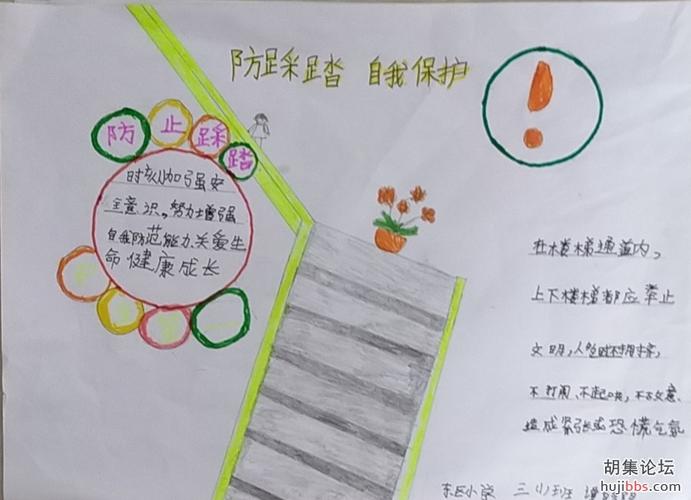 防踩踏 自我保护
防止踩踏
时刻加强安
全意识。努力增强
自我防范能力关爱生
命健康成长
在楼梯通道内，
上下楼梯都应举止
文明，人多时不拥挤，
不打闹、不起哄，不故意
造成紧张或恐慌气氛
东区小学 三 班
胡集论坛
hujibbs.com